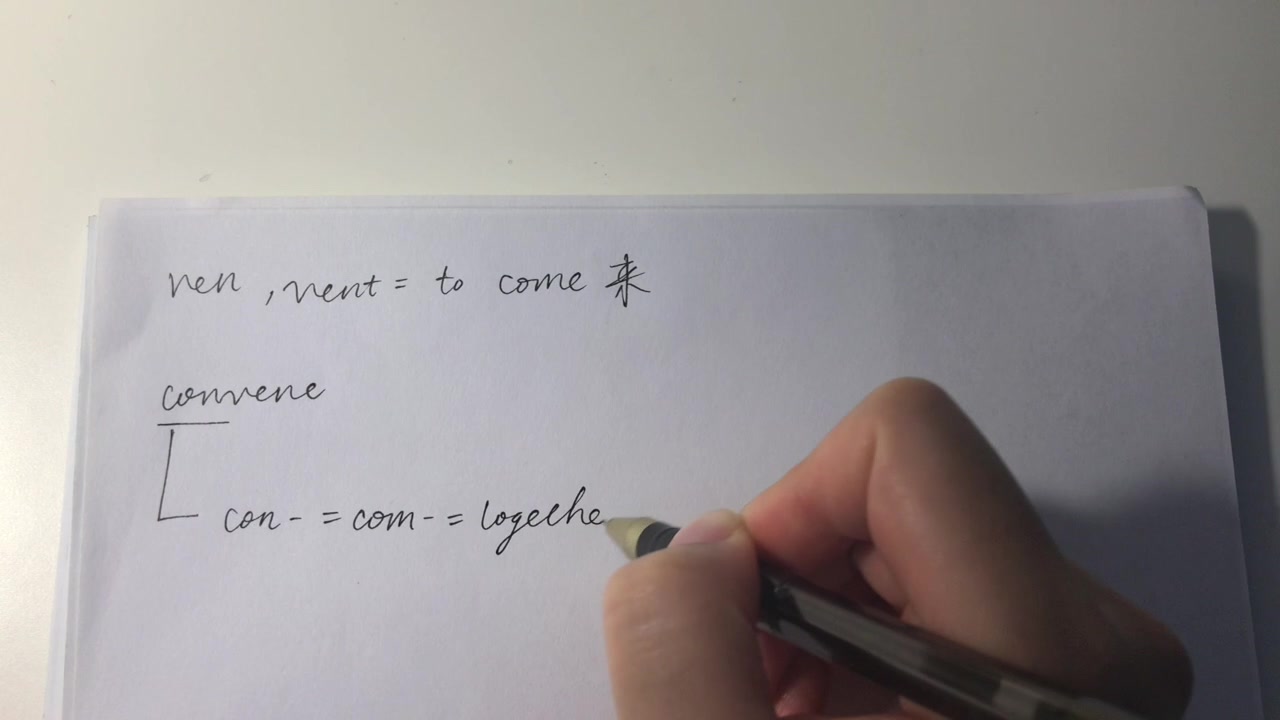 ven , vent = to come 来
convene
con- = com- = togethe